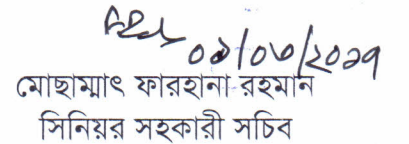 ০১/০৩/২০১৭
মোছাম্মাৎ ফারহানা রহমান
সিনিয়র সহকারী সচিব